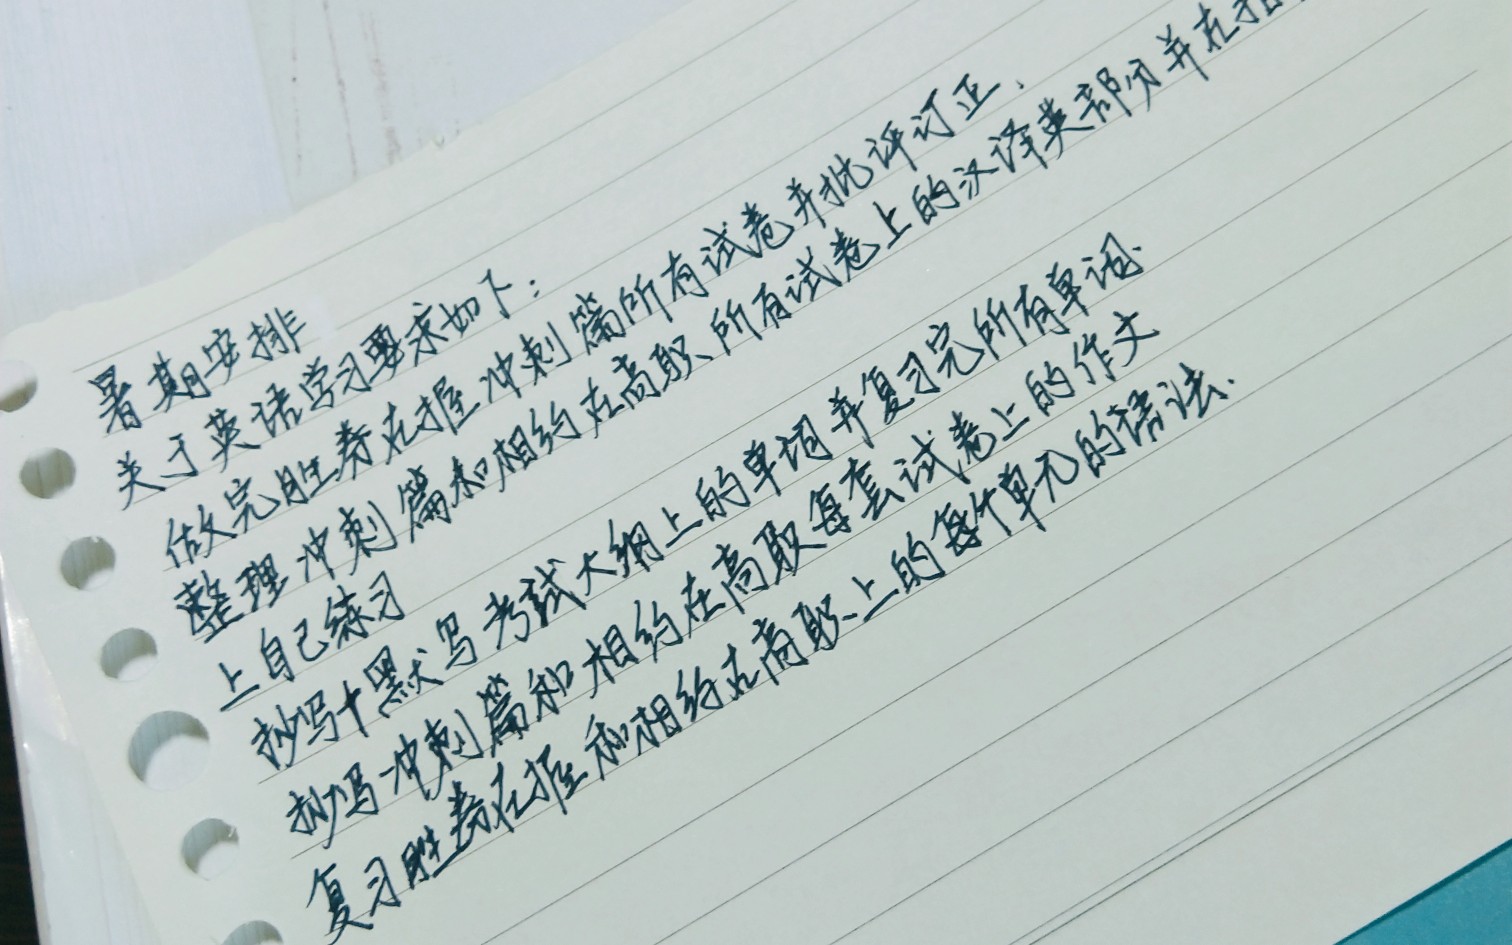 暑期安排
关于英语学习要求如下：
做完胜券在握冲刺篇所有试卷并批评订正.
整理冲刺篇和相约在高职、所有试卷上的汉译英部分并在
上自己练习
抄写+默写考试大纲上的单词并复习完所有单词.
抄写冲刺篇和相约在高职每套试卷上的作文
复习胜券在握和相约在高职.上的每个单元的语法.